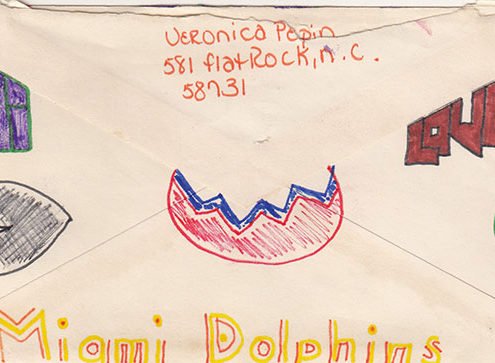 Veronica Pepin
581 flat Rock, N.C.
58731
Miami Dolphins